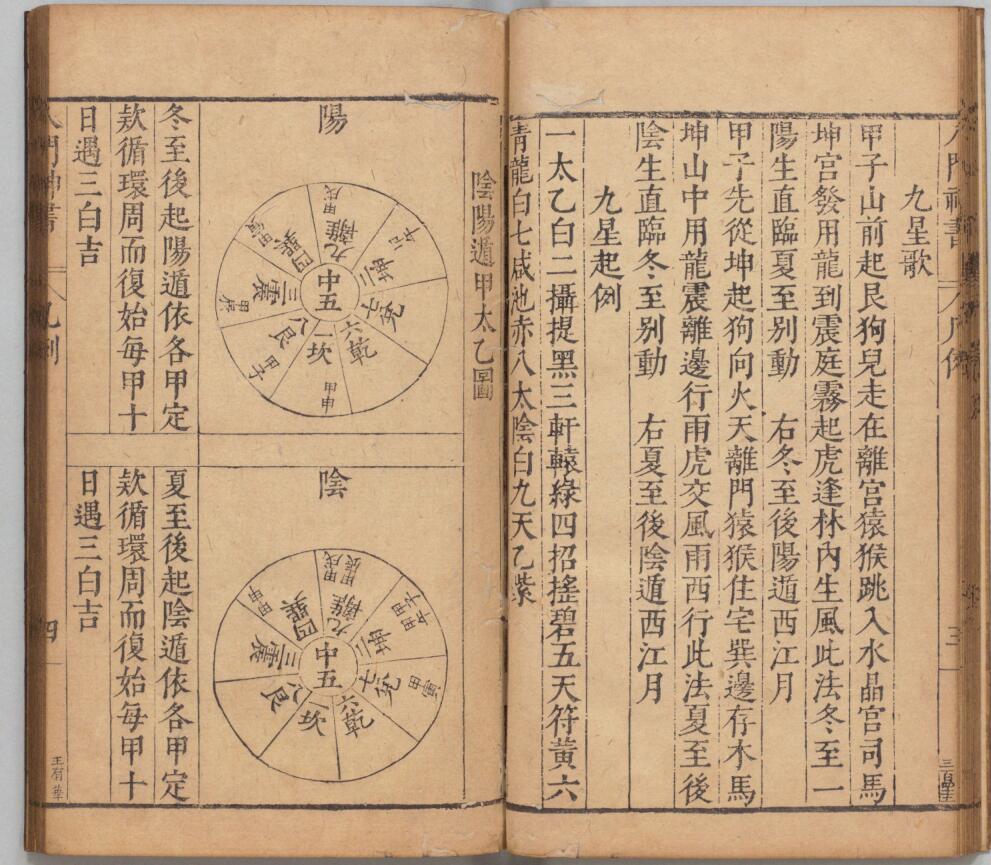 九星歌
甲子山前起艮狗兒走在離宮猿猴跳入水晶宮司馬
坤宮發用龍到震庭霧起虎逢林內生風此法冬至一
陽生直臨夏至別動 右冬至後陽遁西江月
甲子先從坤起狗向火天離門猿猴住宅巽邊存水馬
坤山中用龍震離邊行雨虎交風雨西行此法夏至後
陰生直臨冬至別動 右夏至後陰遁西江月
九星起例
一太乙白二攝提黑三軒轅綠四招搖碧五天符黃六
青龍白七咸池赤八太陰白九天乙紫
陰陽遁甲太乙圖
陽
中五
九離
甲戌
坤二
兌七
六乾
一坎
甲申
八艮
甲子
三震
甲辰
巽四
甲寅
冬至後起陽遁依各甲定
欵循環周而復始每甲十
日遇三白吉
陰
中五
九離
甲戌
甲辰
坤二
甲子
兌七
甲寅
六乾
坎
八艮
三震
巽四
甲申
夏至後起陰遁依各甲定
欵循環周而復始每甲十
日遇三白吉
四